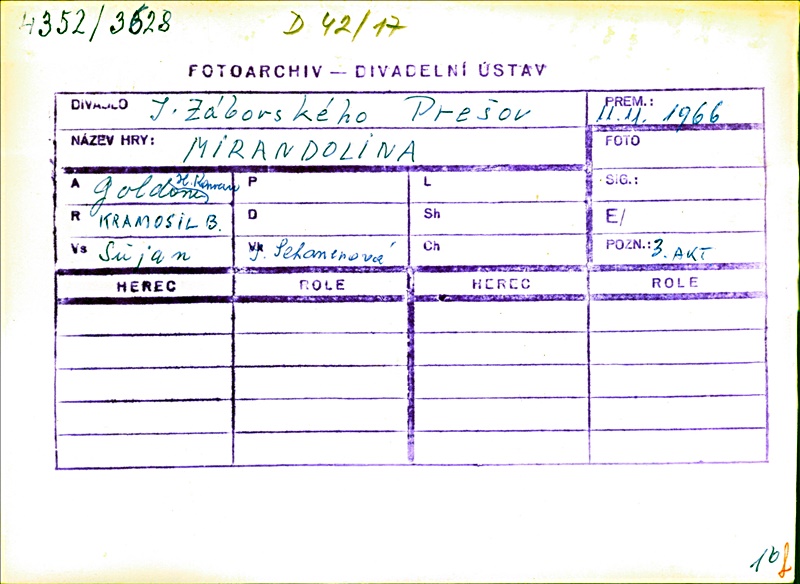 4352/3628 D 42/17
FOTOARCHIV — DIVADELNÍ ÚSTAV
DIVADLO J. Záborského Prešov PREM.: 1966
NÁZEV HRY: MIRANDOLINA FOTO
A Goldoni P L SIG.:
R KRAMOSIL B. D Sh E/
Vs Šujan Vk J. Ch POZN.: 3. AKT
HEREC ROLE HEREC ROLE